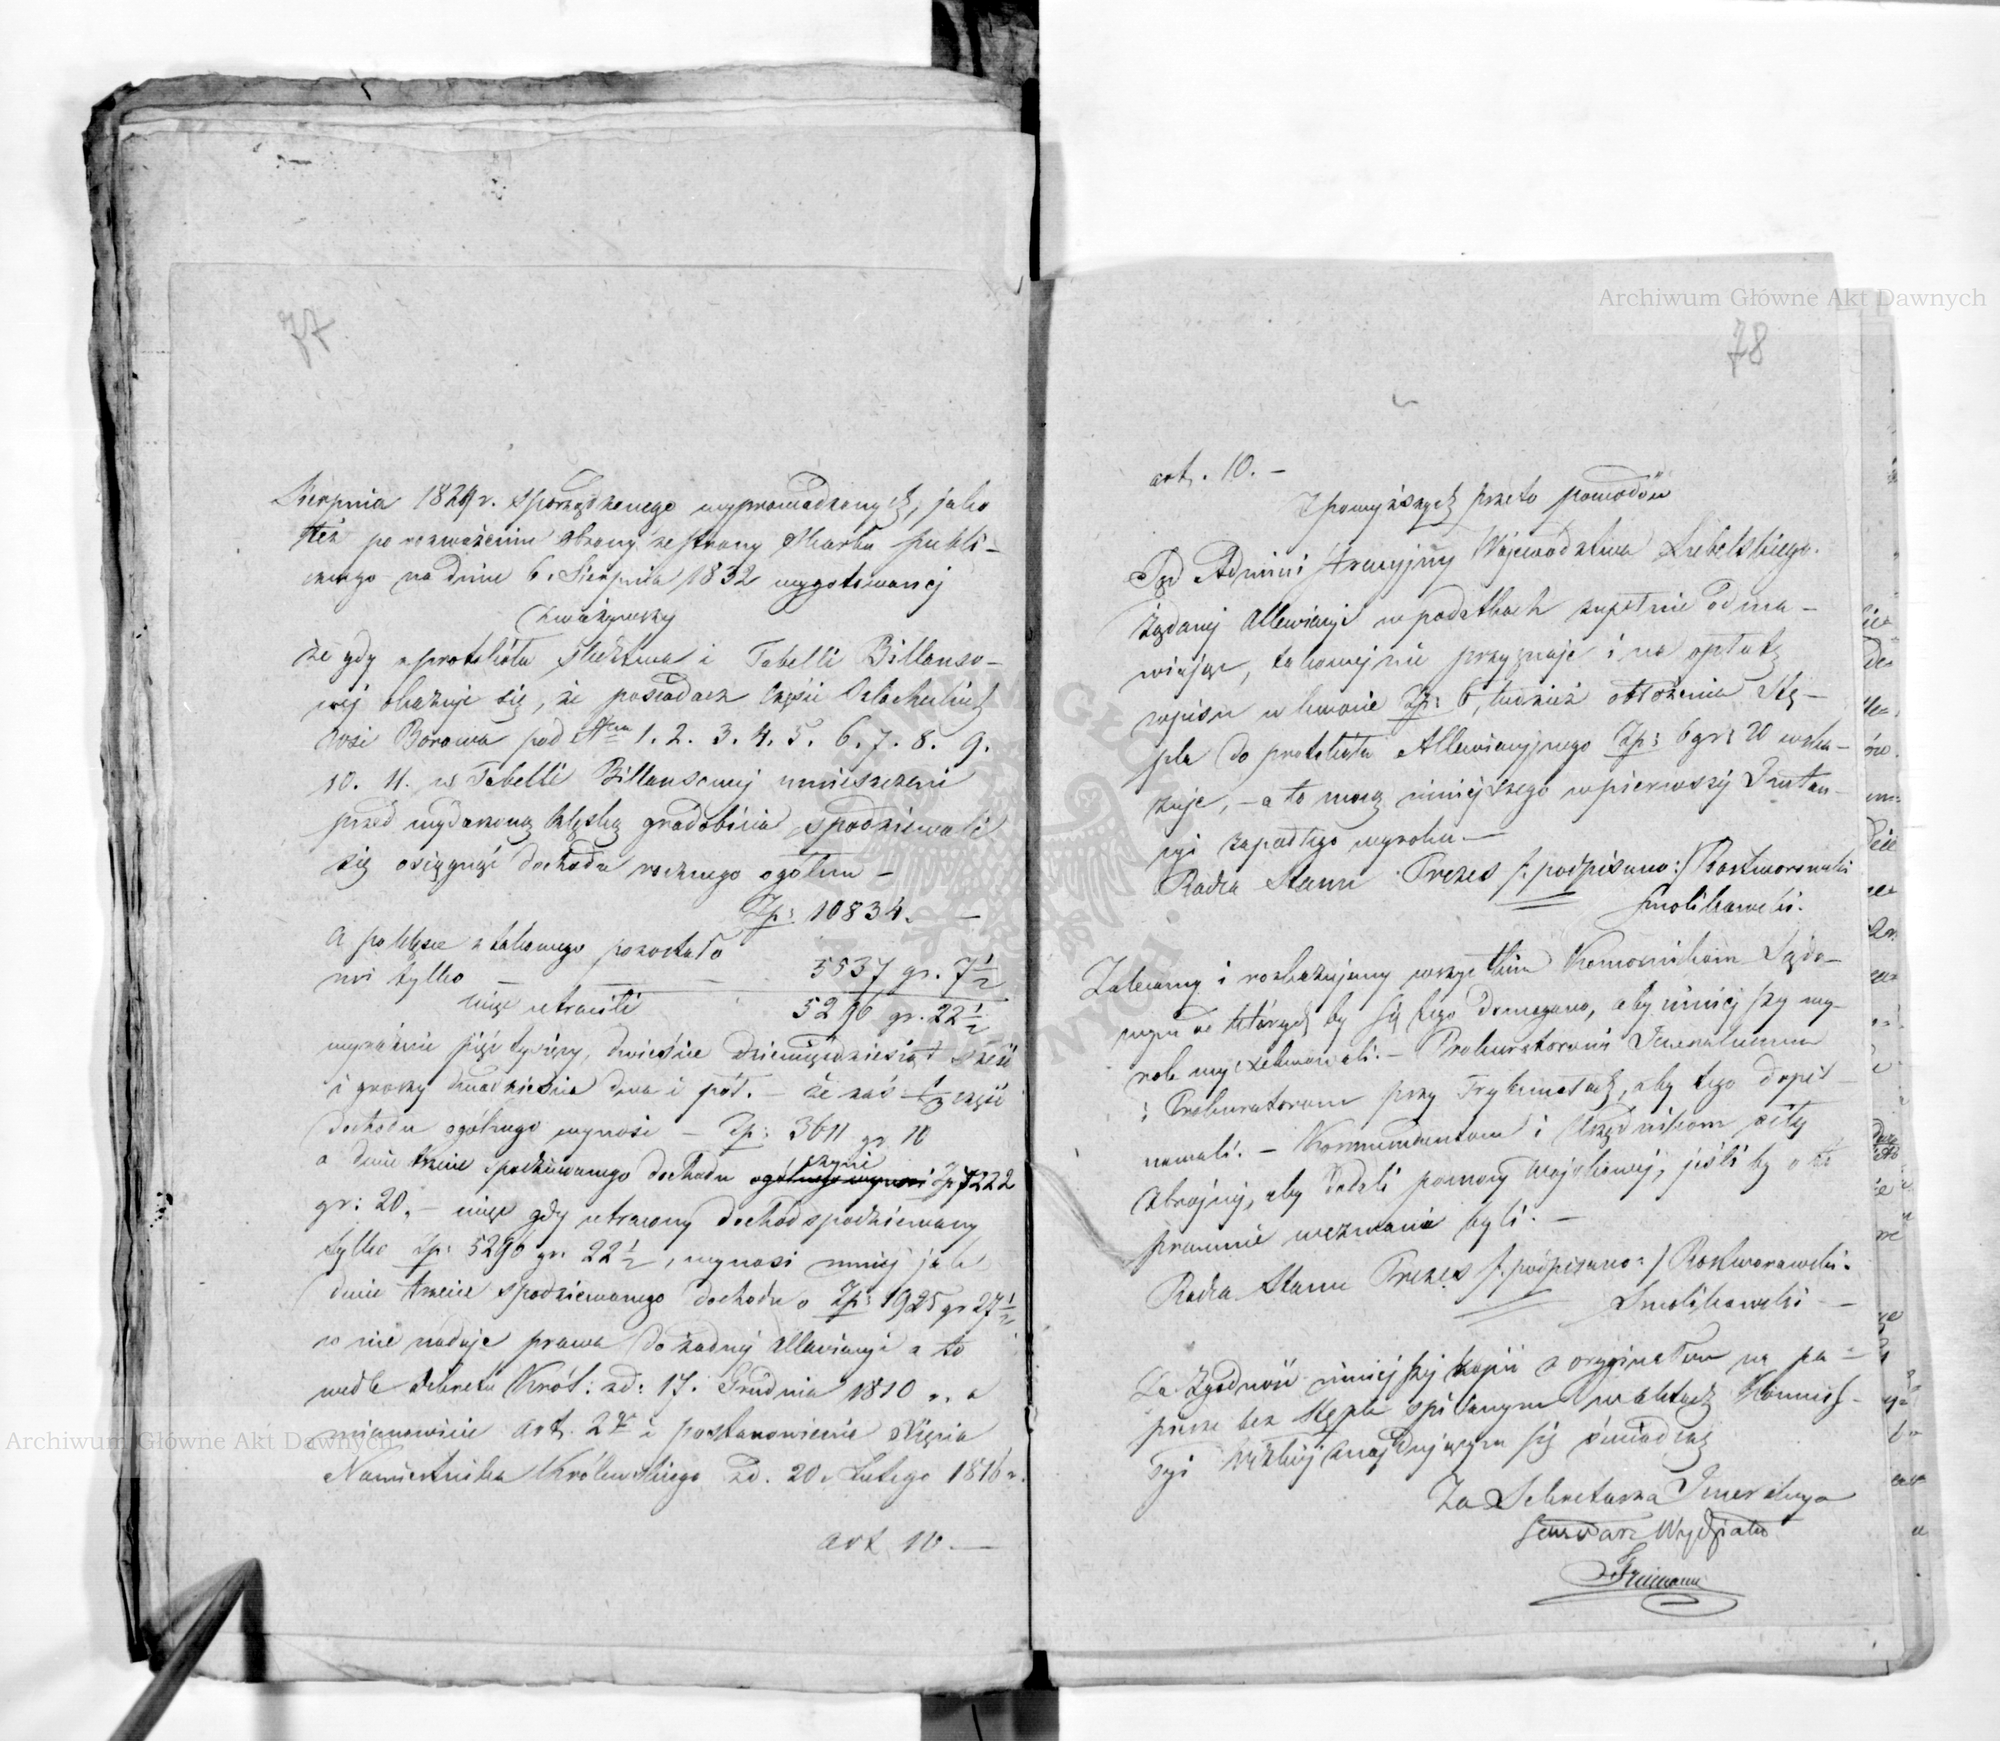 77
Sierpnia 1829 r. sporządzonego wyprowadzonych, jako
też po rozważeniu obrony ze strony Skarbu publi-
cznego na dniu 6. Sierpnia 1832 wygotowanej
zważywszy
że gdy z protokółu śledztwa i Tabelli Billanso-
wej okazuje się, że posiadacze części szlacheckich
wsi Borowa pod Nrem 1. 2. 3. 4. 5. 6. 7. 8. 9.
10. 11. w Tabelli Billansowej umieszczeni
przed wydarzoną klęską gradobicia spodziewali
się osięgnąć dochodu rocznego ogółem –
Zp: 10834. —
A po klęsce z takowego pozostało
im tylko — — 5537 gr. 7½
więc utracili 5296 gr. 22½
wyraźnie pięć tysięcy, dwieście dziewięćdziesiąt sześć
i groszy dwadzieścia dwa i pół. – Że zaś ⅓ część
dochodu ogólnego wynosi – Zp: 3611 gr 10
czyni
a dwie trzecie spodziewanego dochodu ogólnego wynosi Zp 7222
gr: 20. – więc gdy utracony dochód spodziewany
tylko Zp: 5296 gr. 22½, wynosi mniej jak
dwie trzecie spodziewanego dochodu o Zp: 1925 gr 27½
co nie nadaje prawa do żadnej allewiacyi a to
wedle dekretu Król: zd: 17. Grudnia 1810 r. a
mianowicie art. 2go i postanowienia Xięcia
Namiestnika Królewskiego zd. 20 Lutego 1816 r.
art 10 —
78
art. 10. –
Z powyższych przeto powodów
Sąd Administracyjny Województwa Lubelskiego.
żądanej allewiacyi w podatkach zupełnie odma-
wiając, takowej nie przyznaje i na opłatę
wpisu w kwocie Zp: 6, tudzież obłożenia stę-
pla do protokułu Allewiacyjnego Zp: 6 gr: 20 wska-
zuje, – a to mocą niniejszego w pierwszej Instan-
cyi zapadłego wyroku. —
Radca Stanu Prezes /:podpisano:/ Rostworowski
Smolikowski.
Zalecamy i rozkazujemy wszystkim Komornikom Sądo-
wym od których by się tego domagano, aby niniejszy wy-
rok wyexekwowali. – Prokuratorowi Jeneralnemu
i Prokuratorom przy Trybunałach, aby tego dopil-
nowali. – Kommendantom i Urzędnikom siły
zbrojnej, aby dodali pomocy wojskowej, jeśli by o to
prawnie wezwani byli. —
Radca Stanu Prezes /:podpisano:/ Rostworowski.
Smolikowski —
Za zgodność niniejszej kopii z oryginałem na pa-
pierze bez stępla spisanym w aktach Kommis-
syi znajdującym się świadczę
Za Sekretarza Jeneralnego
Wydziału